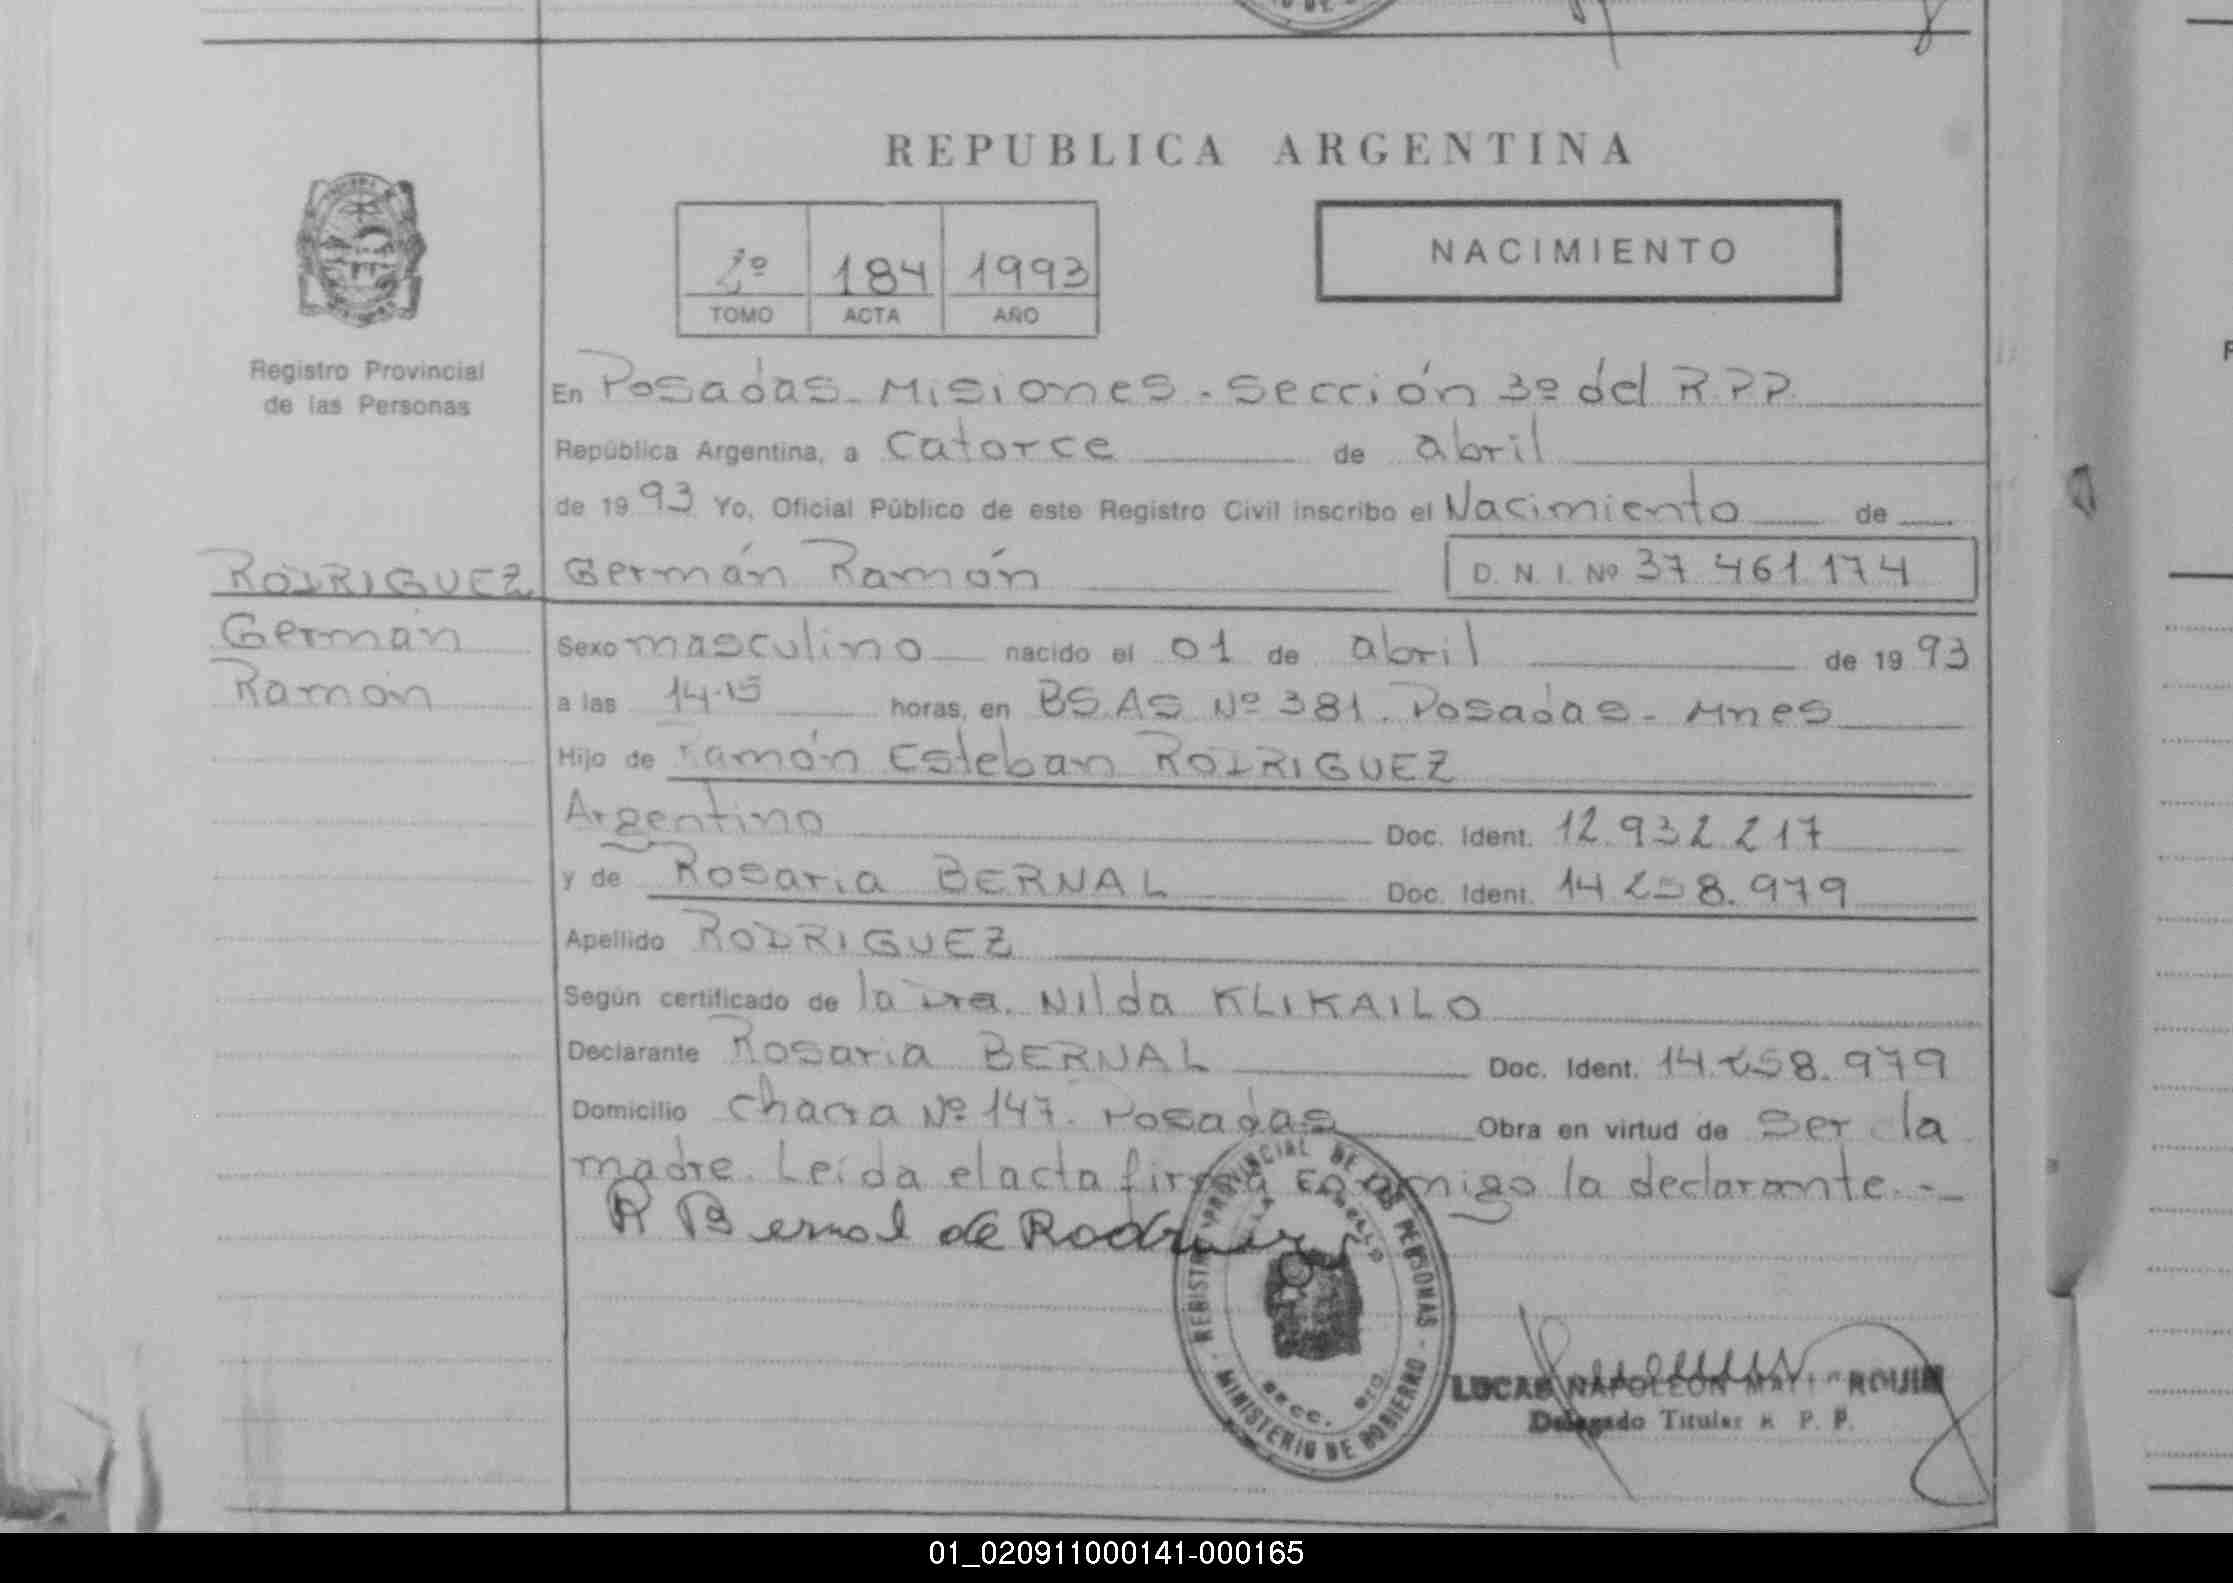 REPUBLICA ARGENTINA
2º 184 1993
TOMO ACTA AÑO
NACIMIENTO
Registro Provincial
de las Personas
En Posadas - Misiones - Sección 3º del R.P.P.
República Argentina, a catorce de abril
de 1993 Yo, Oficial Público de este Registro Civil inscribo el Nacimiento de
RODRIGUEZ Germán Ramón D. N. I. Nº 37.461.174
Germán
Ramón
Sexo masculino nacido el 01 de abril de 1993
a las 14.15 horas, en BS.AS Nº 381. Posadas - Mnes
Hijo de Ramón Esteban RODRIGUEZ
Argentino Doc. Ident. 12.932.217
y de Rosaria BERNAL Doc. Ident. 14.258.979
Apellido RODRIGUEZ
Según certificado de la Dra. Nilda KLIKAILO
Declarante Rosaria BERNAL Doc. Ident. 14.258.979
Domicilio Chacra Nº 147. Posadas Obra en virtud de ser la
madre. Leída el acta firma conmigo la declarante.-
R Bernal de Rodriguez
REGISTRO PROVINCIAL DE LAS PERSONAS
MINISTERIO DE GOBIERNO
SECC. 3ra.
LUCAS NAPOLEON
Delegado Titular R. P. P.
01_020911000141-000165